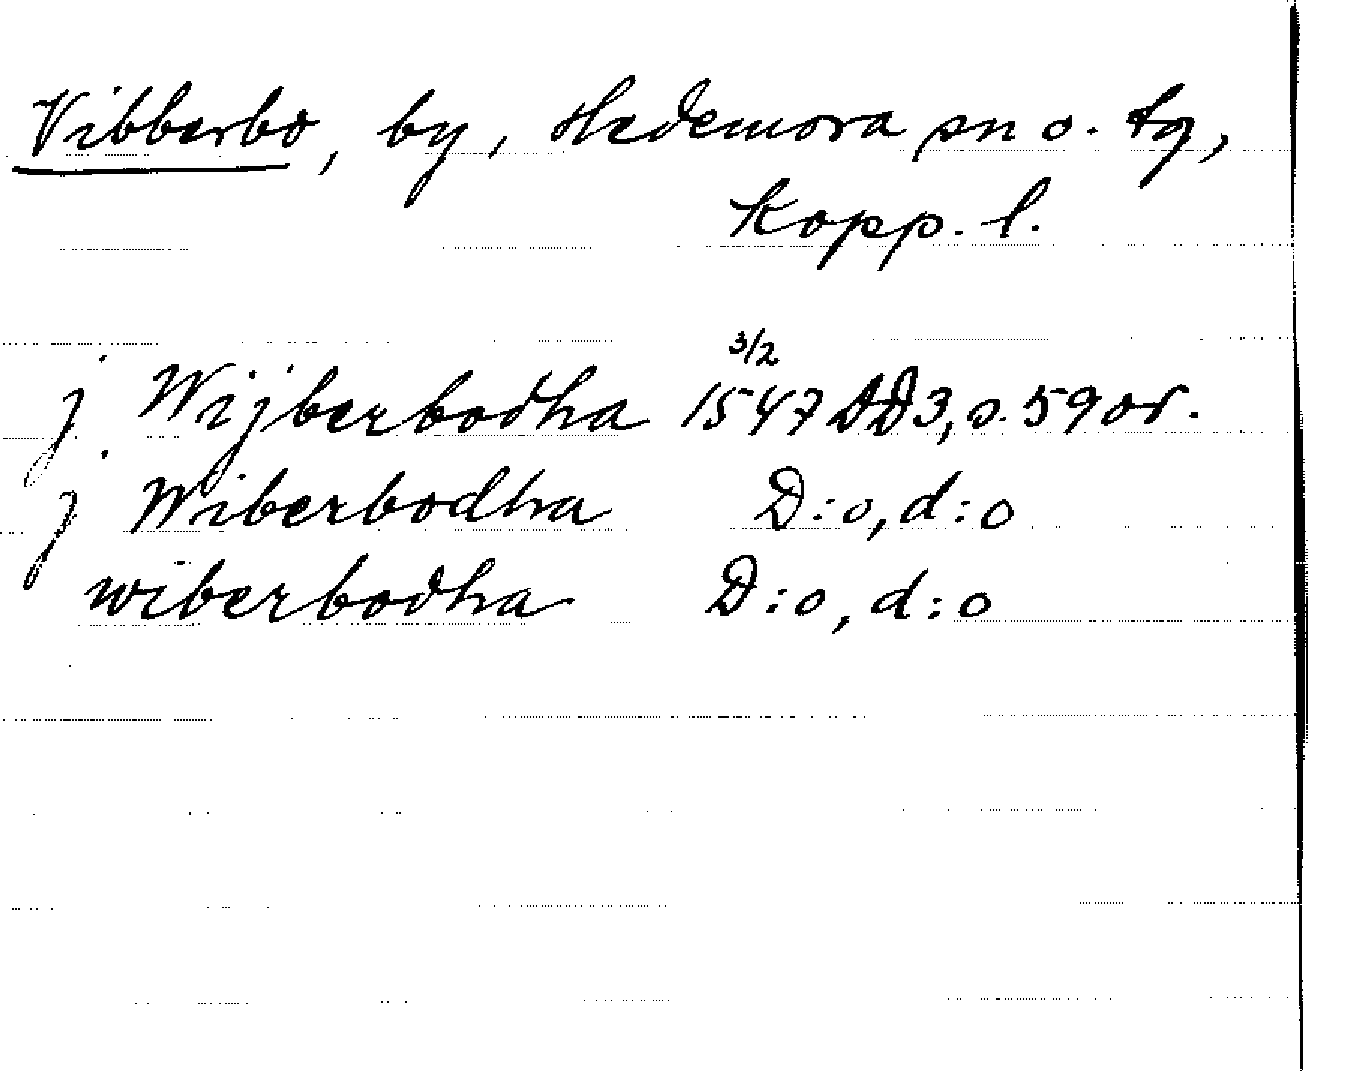 Vibberbo, by, Hedemora sn o. tg,
Kopp. l.
j Wijberbodha 3/2 1547 DD3, s. 59 or.
j Wiberbodha D:o, d:o
wiberbodha D:o, d:o